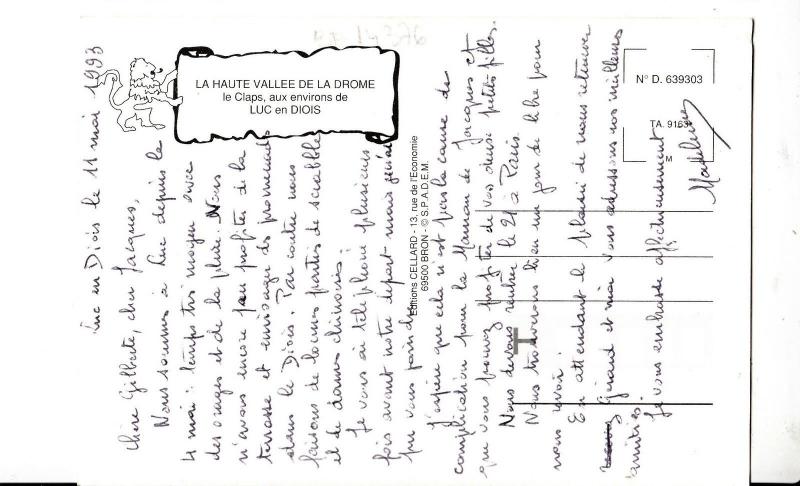 LA HAUTE VALLEE DE LA DROME
le Claps, aux environs de
LUC en DIOIS
N° D. 639303
TA. 9163
M
Editions CELLARD - 13, rue de l'Economie
69500 BRON - © S.P.A.D.E.M.
Luc en Diois le 11 mai 1993
Chère Gilberte, cher Jacques,
Nous sommes à Luc depuis le
4 mai : temps très moyen avec
des orages et de la pluie. Nous
n'avons encore peu profiter de la
terrasse et envisager des promenades
dans le Diois. Par contre nous
faisons de bonnes parties de scrabble
et de dames chinoises !
Je vous ai téléphoné plusieurs
fois avant notre départ mais je n'ai
pu vous joindre
J'espère que cela n'est pas la cause de
complication pour la Maman de Jacques et
que vous pouvez profiter de vos deux petites filles.
Nous devons rentrer le 21 à Paris.
Nous trouverons bien un jour de libre pour
nous revoir.
En attendant le plaisir de vous retrouver
Gérard et moi vous adressons nos meilleures
amitiés.
Je vous embrasse affectueusement
Madeleine